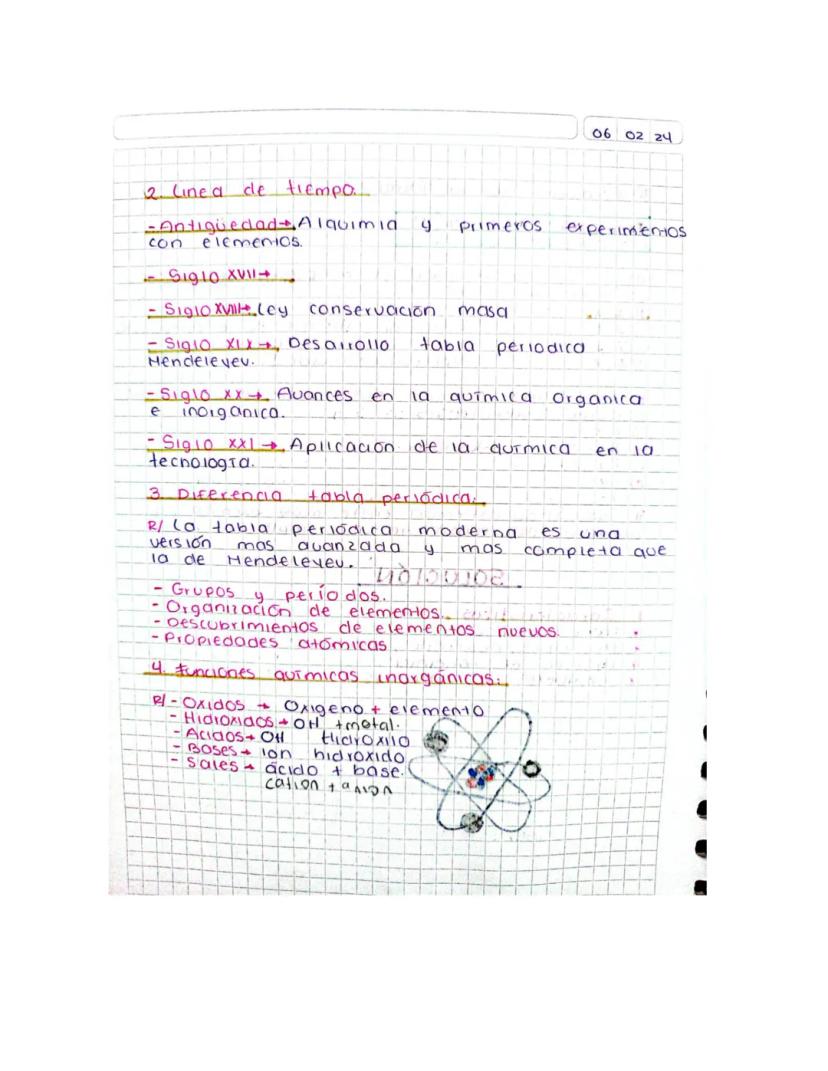 06 02 24
2. Linea de tiempo.
- Antigüedad → Alquimia y primeros experimentos
con elementos.
- Siglo XVII →
- Siglo XVIII → Ley conservación masa
- Siglo XIX → Desarrollo tabla periodica
Mendeleyev.
- Siglo XX → Avances en la química organica
e inorganica.
- Siglo XXI → Aplicación de la química en la
tecnología.
3. Diferencia tabla periódica:
R/ La tabla periódica moderna es una
versión mas avanzada y mas completa que
la de Mendeleyev.
- Grupos y períodos.
- Organización de elementos.
- Descubrimientos de elementos nuevos.
- Propiedades atómicas
4. Funciones químicas inorgánicas:
R/ - Oxidos → Oxigeno + elemento
- Hidroxidos → OH + metal.
- Acidos → OH Hidroxilo
- Bases → ion hidroxido
- Sales → ácido + base.
cation + anion